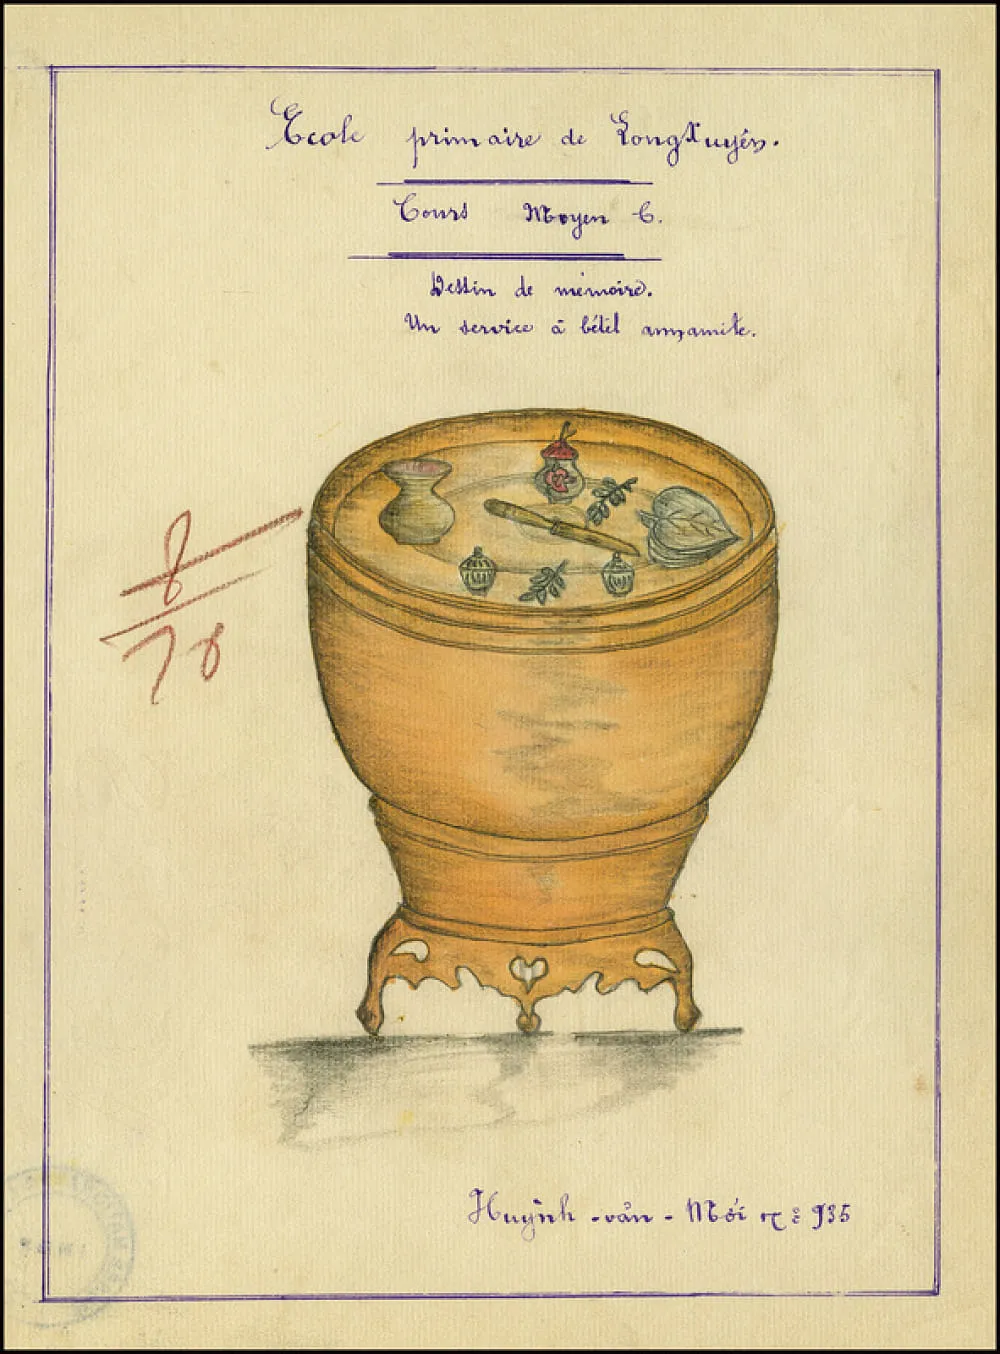 Ecole primaire de LongXuyên.
Cours Moyen C.
Dessin de mémoire.
Un service à bétel annamite.
8
10
Huỳnh - văn - Mới
935